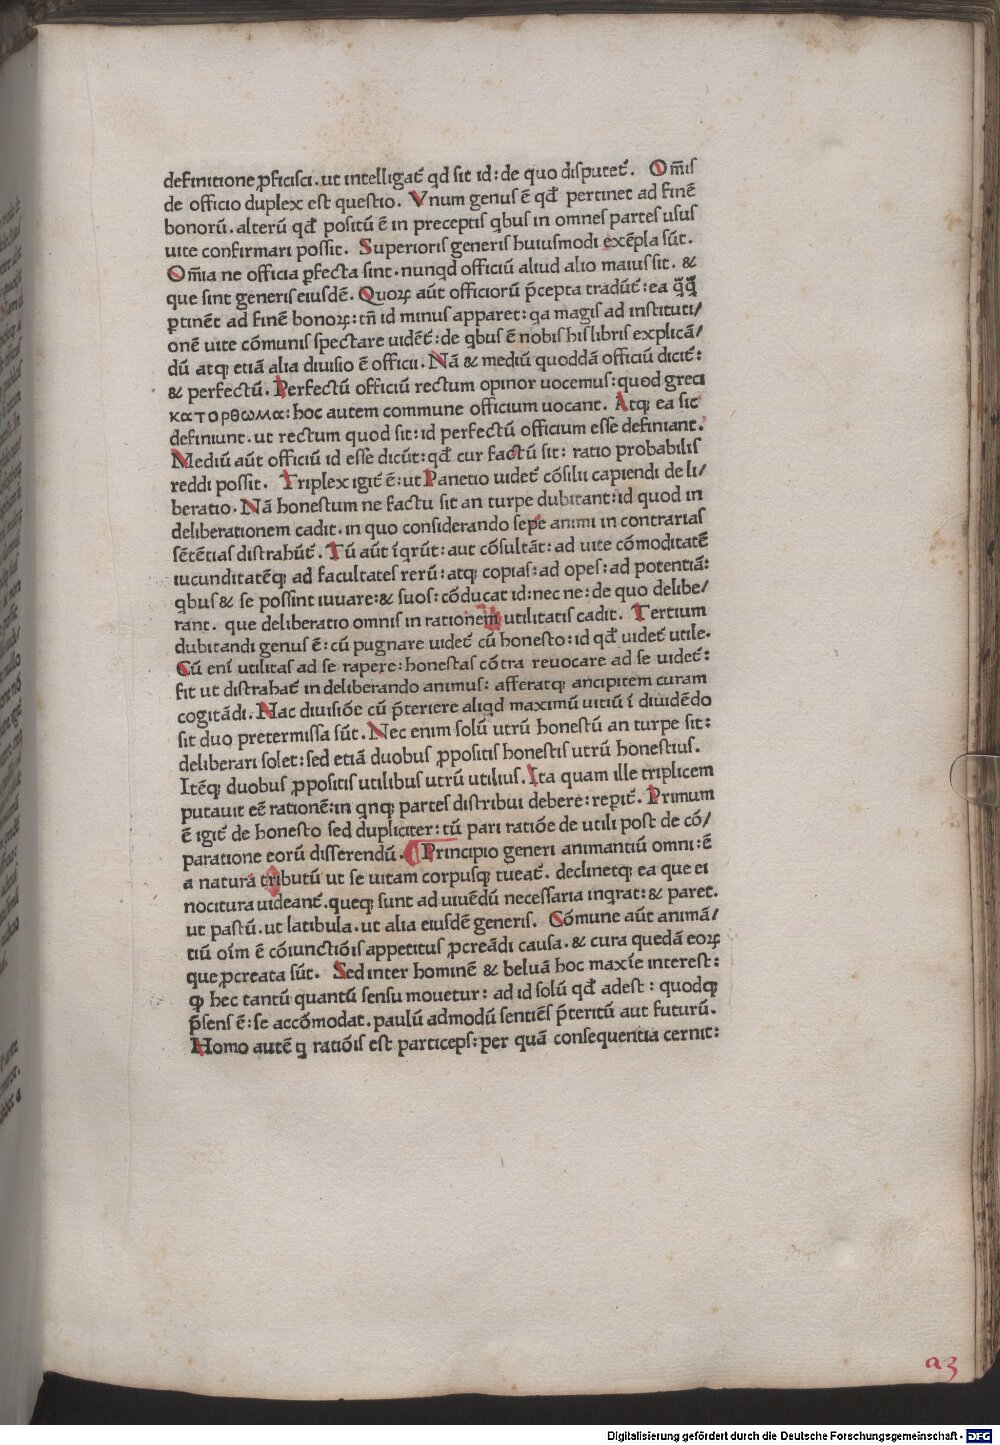 definitione ꝓficisci. ut intelligat̃ qd sit id: de quo disputet̃. Om̃is
de officio duplex est questio. Vnum genus ē qđ pertinet ad finē
bonorū. alterū qđ positū ē in preceptis qbus in omnes partes usus
uite confirmari possit. Superioris generis huiusmodi exēpla sūt.
Om̃ia ne officia ꝑfecta sint. nunqd officiū aliud alio maius sit. &
que sint generis eiusdē. Quoꝝ aūt officiorū p̄cepta tradūt̃: ea q̄q̄
ꝑtinēt ad finē bonoꝝ: tñ id minus apparet: qa magis ad instituti/
onē uite cōmunis spectare uidēt̃: de qbus ē nobis his libris explicā/
dū atqꝫ etiā alia diuisio ē officii. Nā & mediū quoddā officiū dicit̃:
& perfectū. Perfectū officiū rectum opinor uocemus: quod greci
κατορθωμα: hoc autem commune officium uocant. Atqꝫ ea sic
definiunt. ut rectum quod sit: id perfectū officium esse definiant.
Mediū aūt officiū id esse dicūt: qđ cur factū sit: ratio probabilis
reddi possit. Triplex igit̃ ē: ut Panetio uidet̃ cōsilii capiendi de li/
beratio. Nā honestum ne factu sit an turpe dubitant: id quod in
deliberationem cadit. in quo considerando sepe animi in contrarias
sētētias distrahūt̃. Tū aūt īqrūt: aut cōsultāt: ad uite cōmoditatē
iucunditatēqꝫ ad facultates rerū: atqꝫ copias: ad opes: ad potentiā:
qbus & se possint iuuare: & suos: cōducat id: nec ne: de quo delibe/
rant. que deliberatio omnis in rationem utilitatis cadit. Tertium
dubitandi genus ē: cū pugnare uidet̃ cū honesto: id qđ uidet̃ utile.
Cū eni utilitas ad se rapere: honestas cōtra reuocare ad se uidet̃:
fit ut distrahat̃ in deliberando animus: afferatqꝫ ancipitem curam
cogitādi. Hac diuisiōe cū p̄teriere aliqd maximū uitiū ī diuidēdo
sit duo pretermissa sūt. Nec enim solū utrū honestū an turpe sit:
deliberari solet: sed etiā duobus ꝓpositis honestis utrū honestius.
Itēqꝫ duobus ꝓpositis utilibus utrū utilius. Ita quam ille triplicem
putauit eē rationē: in qnqꝫ partes distribui debere: reꝑit̃. Primum
ē igit̃ de honesto sed dupliciter: tū pari ratiōe de utili post de cō/
paratione eorū disserendū. Principio generi animantiū omni: ē
a natura tributū ut se uitam corpusqꝫ tueat̃. declinetqꝫ ea que ei
nocitura uideant̃. queqꝫ sunt ad uiuēdū necessaria inqrat: & paret.
ut pastū. ut latibula. ut alia eiusdē generis. Cōmune aūt animā/
tiū oīm ē cōiunctiōis appetitus ꝓcreādi causa. & cura quedā eoꝝ
que ꝓcreata sūt. Sed inter hominē & beluā hoc maxīe interest:
ꝙ hec tantū quantū sensu mouetur: ad id solū qđ adest: quodqꝫ
p̄sens ē: se accōmodat. paulū admodū sentiēs p̄teritū aut futurū.
Homo autē q ratiōis est particeps: per quā consequentia cernit:
a3
Digitalisierung gefördert durch die Deutsche Forschungsgemeinschaft - DFG